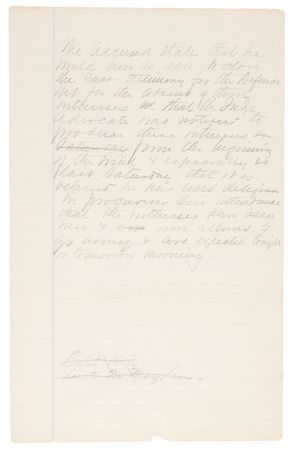 The accused states that he
would now be able to close
the case testimony for the Defense
but for the absence of these
witnesses & that the Judge
Advocate was notified to
produce these witnesses on
Saturday from the beginning
of the trial & especially
last Saturday that
in his
in procuring their attendance
that the witnesses have been
here & now allowed to
go away & are expected tonight
or tomorrow morning.